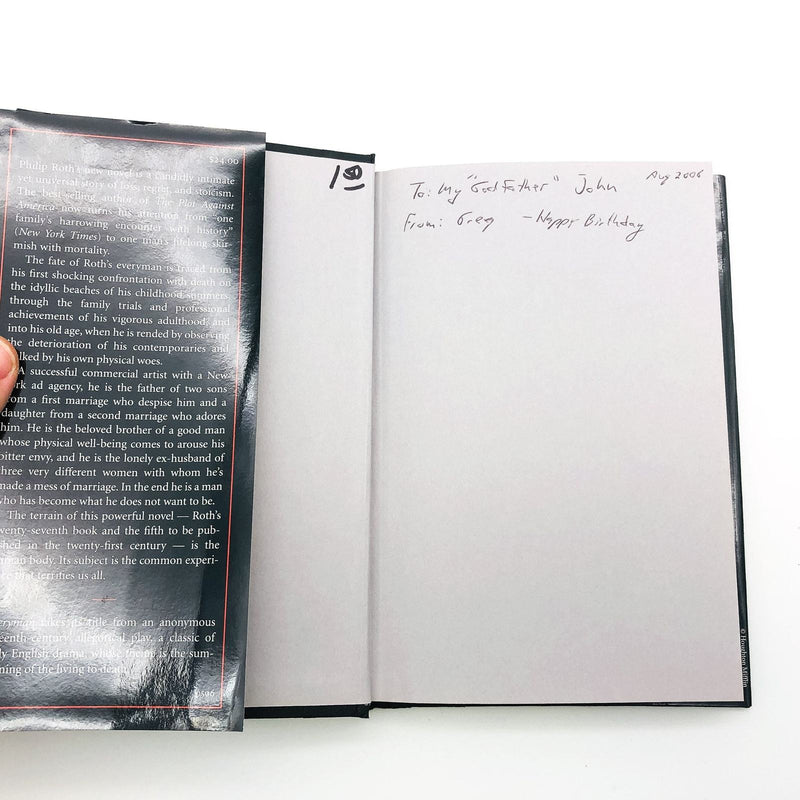 $24.00
Philip Roth's new novel is a candidly intimate
yet universal story of loss, regret, and stoicism.
The best-selling author of The Plot Against
America now turns his attention from "one
family's harrowing encounter with history"
(New York Times) to one man's lifelong skir-
mish with mortality.
The fate of Roth's everyman is traced from
his first shocking confrontation with death on
the idyllic beaches of his childhood summers,
through the family trials and professional
achievements of his vigorous adulthood, and
into his old age, when he is rended by observing
the deterioration of his contemporaries and
alked by his own physical woes.
A successful commercial artist with a New
rk ad agency, he is the father of two sons
om a first marriage who despise him and a
daughter from a second marriage who adores
him. He is the beloved brother of a good man
whose physical well-being comes to arouse his
bitter envy, and he is the lonely ex-husband of
three very different women with whom he's
made a mess of marriage. In the end he is a man
who has become what he does not want to be.
The terrain of this powerful novel — Roth's
wenty-seventh book and the fifth to be pub-
shed in the twenty-first century — is the
man body. Its subject is the common experi-
ce that terrifies us all.
eryman takes its title from an anonymous
eenth-century allegorical play, a classic of
ly English drama, whose theme is the sum-
ning of the living to death.
0506
1 00
Aug 2006
To: My "GodFather" John
From: Greg - Happy Birthday
© Houghton Mifflin